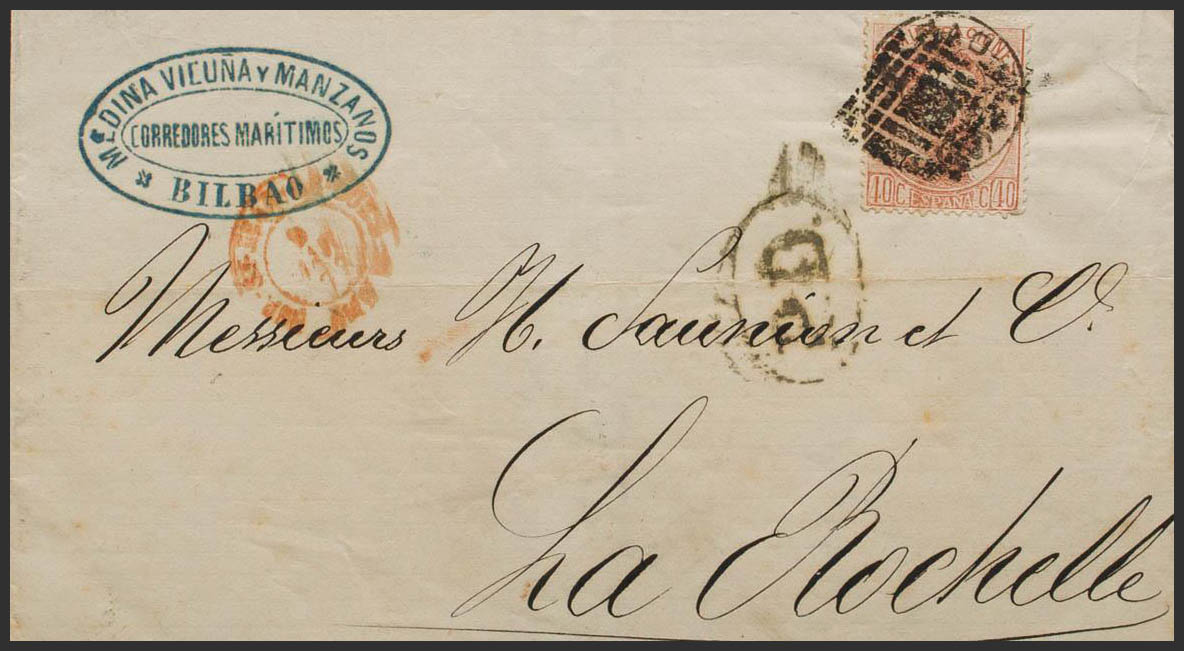 MEDINA VICUÑA Y MANZANOS
CORREDORES MARÍTIMOS
BILBAO
40 C. ESPAÑA C. 40
P.D.
Messieurs H. Saunion et Cº.
La Rochelle